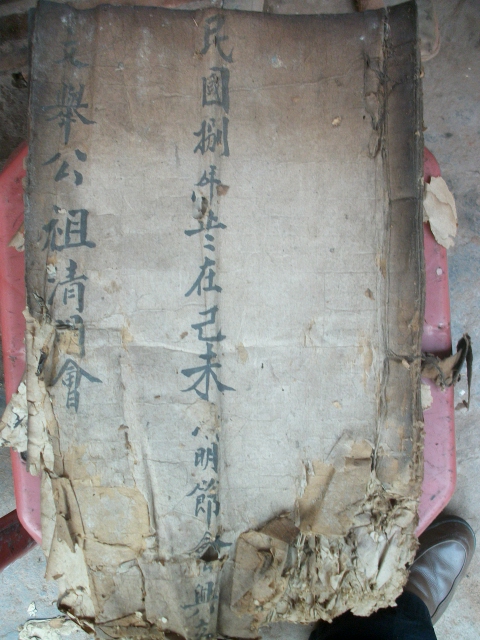 民國捌年歲在己未明節興
文舉公祖清明會